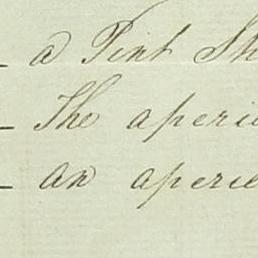 a Pint
The aperi
an aperie